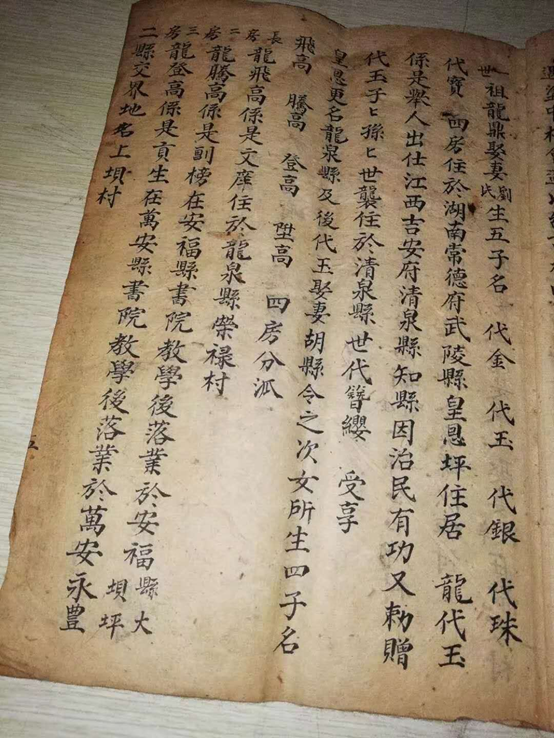 一世祖龍鼎娶妻劉氏生五子名 代金 代玉 代銀 代珠
代寶 四房住於湖南常德府武陵縣皇恩坪住居 龍代玉
係是舉人出仕江西吉安府清泉縣知縣因治民有功又勅贈
代玉子匕孫匕世襲住於清泉縣世代簪纓 受享
皇恩更名龍泉縣及後代玉娶妻胡縣令之次女所生四子名
飛高 騰高 登高 陞高 四房分派
長房龍飛高係是文庠住於龍泉縣榮禄村
二房龍騰高係是副榜在安福縣書院教學後落業於安福縣大坝坪
三房龍登高係是貢生在萬安縣書院教學後落業於萬安永豊
二縣交界地名上坝村